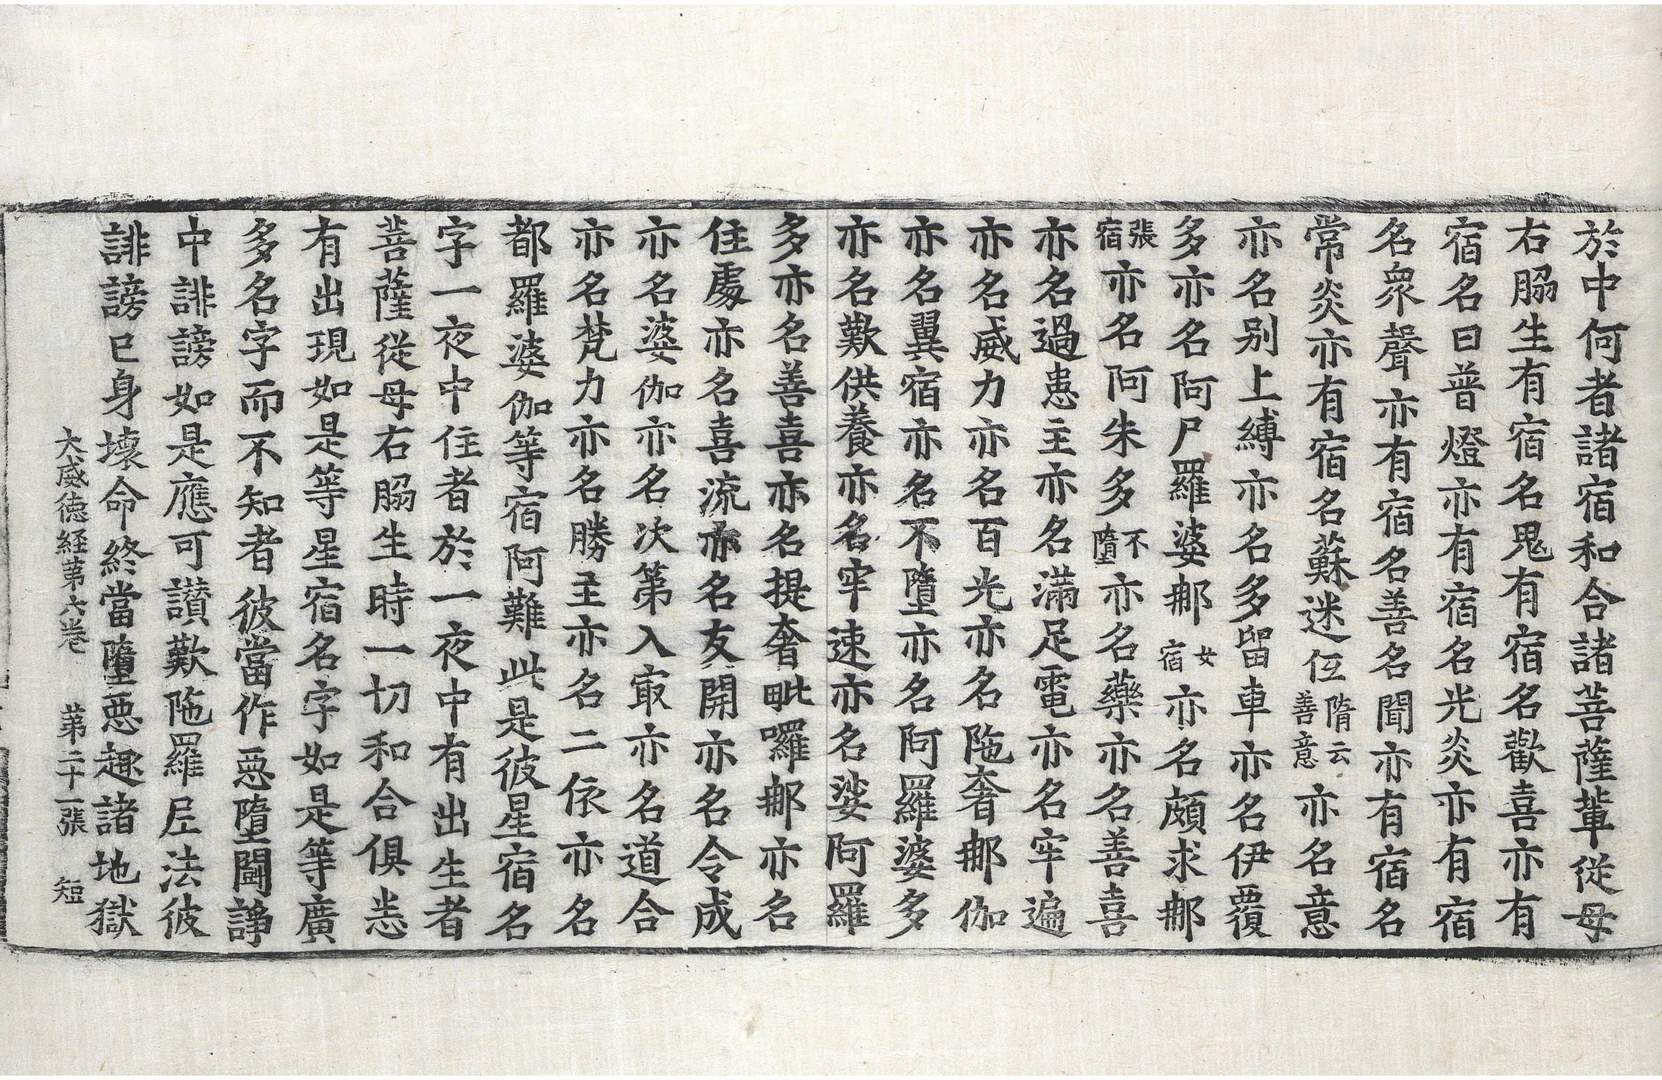 於中何者諸宿和合諸菩薩輩從母
右脇生有宿名鬼有宿名歡喜亦有
宿名曰普燈亦有宿名光炎亦有宿
名衆聲亦有宿名善名聞亦有宿名
常炎亦有宿名蘇迷伍隋云善意亦名意
亦名別上縛亦名多留車亦名伊覆
多亦名阿尸羅婆那女宿亦名頗求那
張宿亦名阿朱多不墮亦名藥亦名善喜
亦名過患主亦名滿足電亦名牢遍
亦名威力亦名百光亦名陁奢那伽
亦名翼宿亦名不墮亦名阿羅婆多
亦名歎供養亦名牢速亦名娑阿羅
多亦名善喜亦名提奢毗囉那亦名
住處亦名喜流亦名友開亦名令成
亦名婆伽亦名次第入㝡亦名道合
亦名梵力亦名勝主亦名二依亦名
都羅婆伽等宿阿難此是彼星宿名
字一夜中住者於一夜中有出生者
菩薩從母右脇生時一切和合俱悉
有出現如是等星宿名字如是等廣
多名字而不知者彼當作惡墮鬪諍
中誹謗如是應可讃歎陁羅尼法彼
誹謗已身壞命終當墮惡趣諸地獄
大威德経第六卷　第二十一張　短